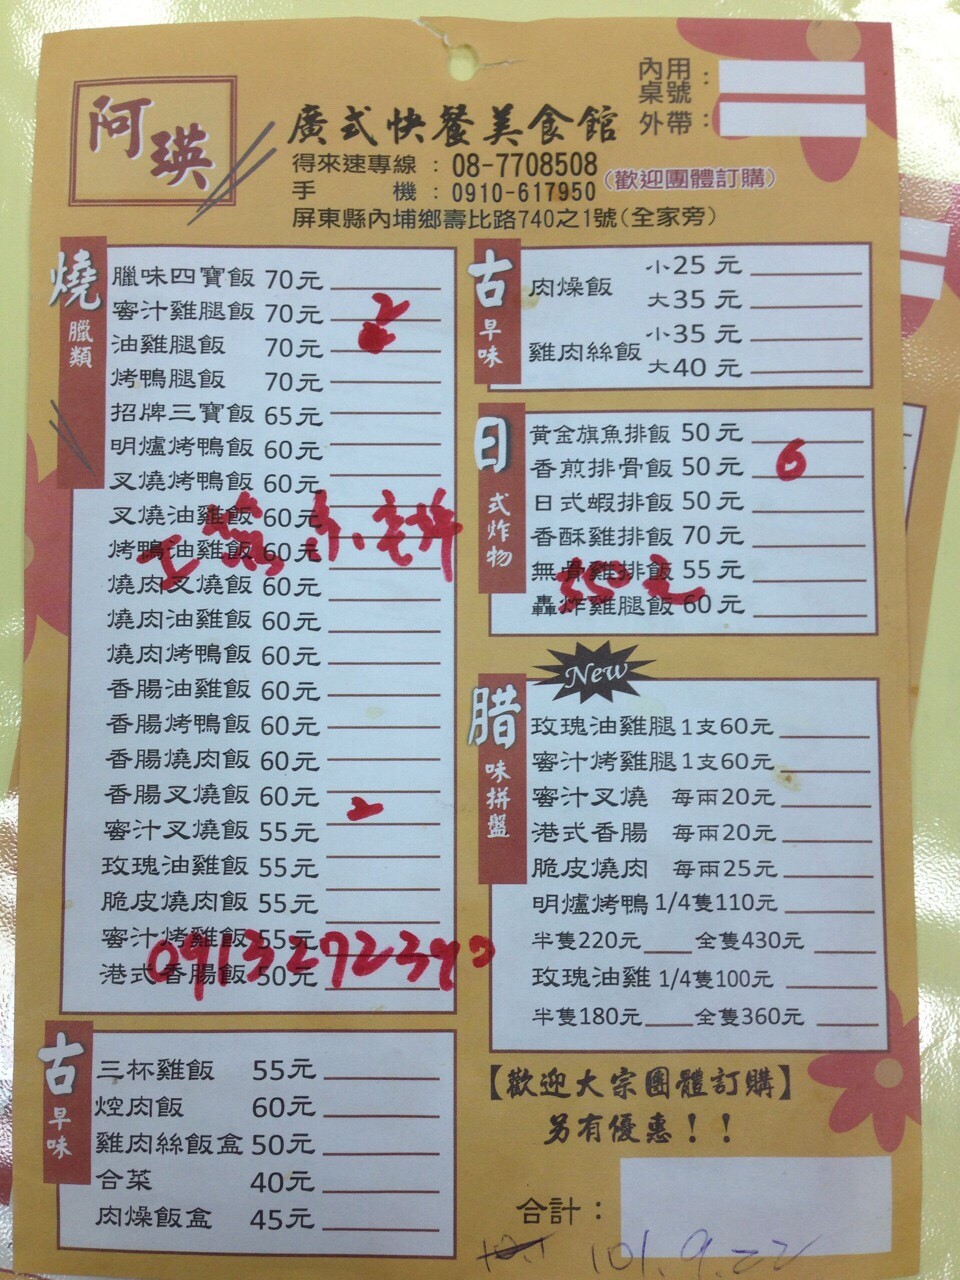 阿瑛
廣式快餐美食館
內用桌號：
外帶：
得來速專線：08-7708508
手機：0910-617950（歡迎團體訂購）
屏東縣內埔鄉壽比路740之1號（全家旁）
燒臘類
臘味四寶飯 70元
蜜汁雞腿飯 70元 2
油雞腿飯 70元
烤鴨腿飯 70元
招牌三寶飯 65元
明爐烤鴨飯 60元
叉燒烤鴨飯 60元
叉燒油雞飯 60元
烤鴨油雞飯 60元
燒肉叉燒飯 60元
燒肉油雞飯 60元
燒肉烤鴨飯 60元
香腸油雞飯 60元
香腸烤鴨飯 60元
香腸燒肉飯 60元
香腸叉燒飯 60元
蜜汁叉燒飯 55元 2
玫瑰油雞飯 55元
脆皮燒肉飯 55元
蜜汁烤雞飯 55元
港式香腸飯 50元
古早味
三杯雞飯 55元
焢肉飯 60元
雞肉絲飯盒 50元
合菜 40元
肉燥飯盒 45元
古早味
肉燥飯 小25元
大35元
雞肉絲飯 小35元
大40元
日式炸物
黃金旗魚排飯 50元
香煎排骨飯 50元 6
日式蝦排飯 50元
香酥雞排飯 70元
無骨雞排飯 55元
轟炸雞腿飯 60元
550元
New
腊味拼盤
玫瑰油雞腿 1支60元
蜜汁烤雞腿 1支60元
蜜汁叉燒 每兩20元
港式香腸 每兩20元
脆皮燒肉 每兩25元
明爐烤鴨 1/4隻110元
半隻220元 全隻430元
玫瑰油雞 1/4隻100元
半隻180元 全隻360元
【歡迎大宗團體訂購】
另有優惠！！
合計：
101.9.22